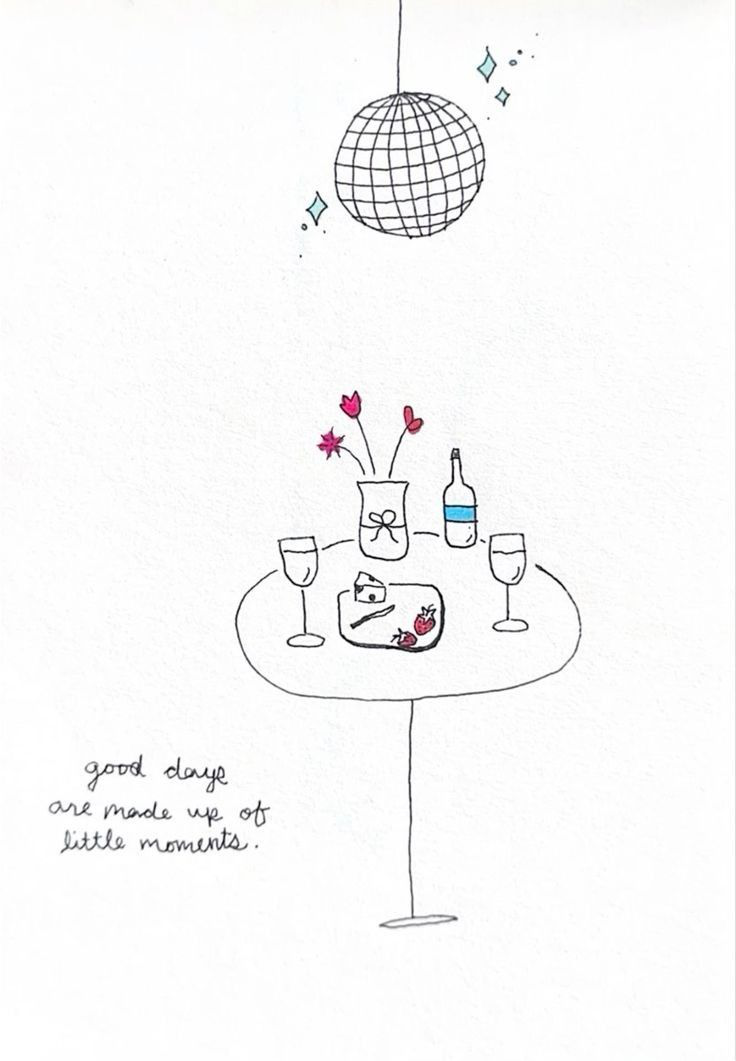 good days
are made up of
little moments.